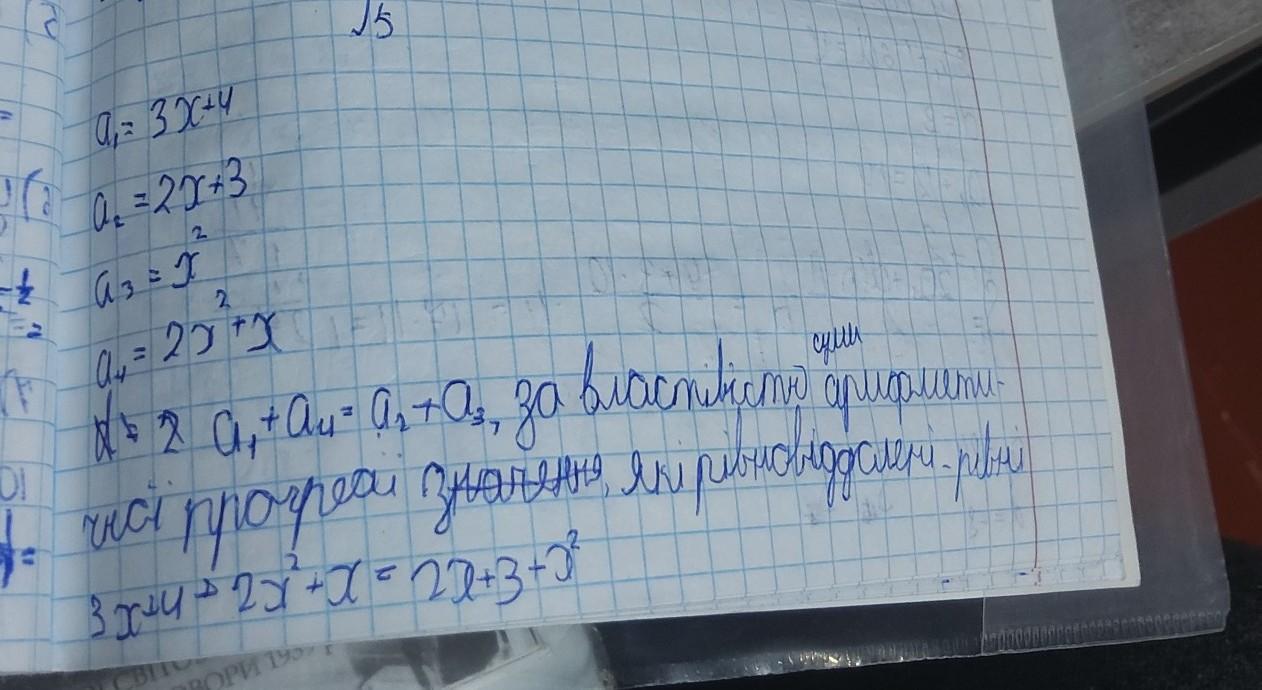 №5
a₁ = 3x+4
a₂ = 2x+3
a₃ = x²
a₄ = 2x²+x
a₁+a₄ = a₂+a₃, за властивістю суми арифмети-
чної прогресії значення, які рівновіддалені - рівні
3x+4+2x²+x = 2x+3+x²